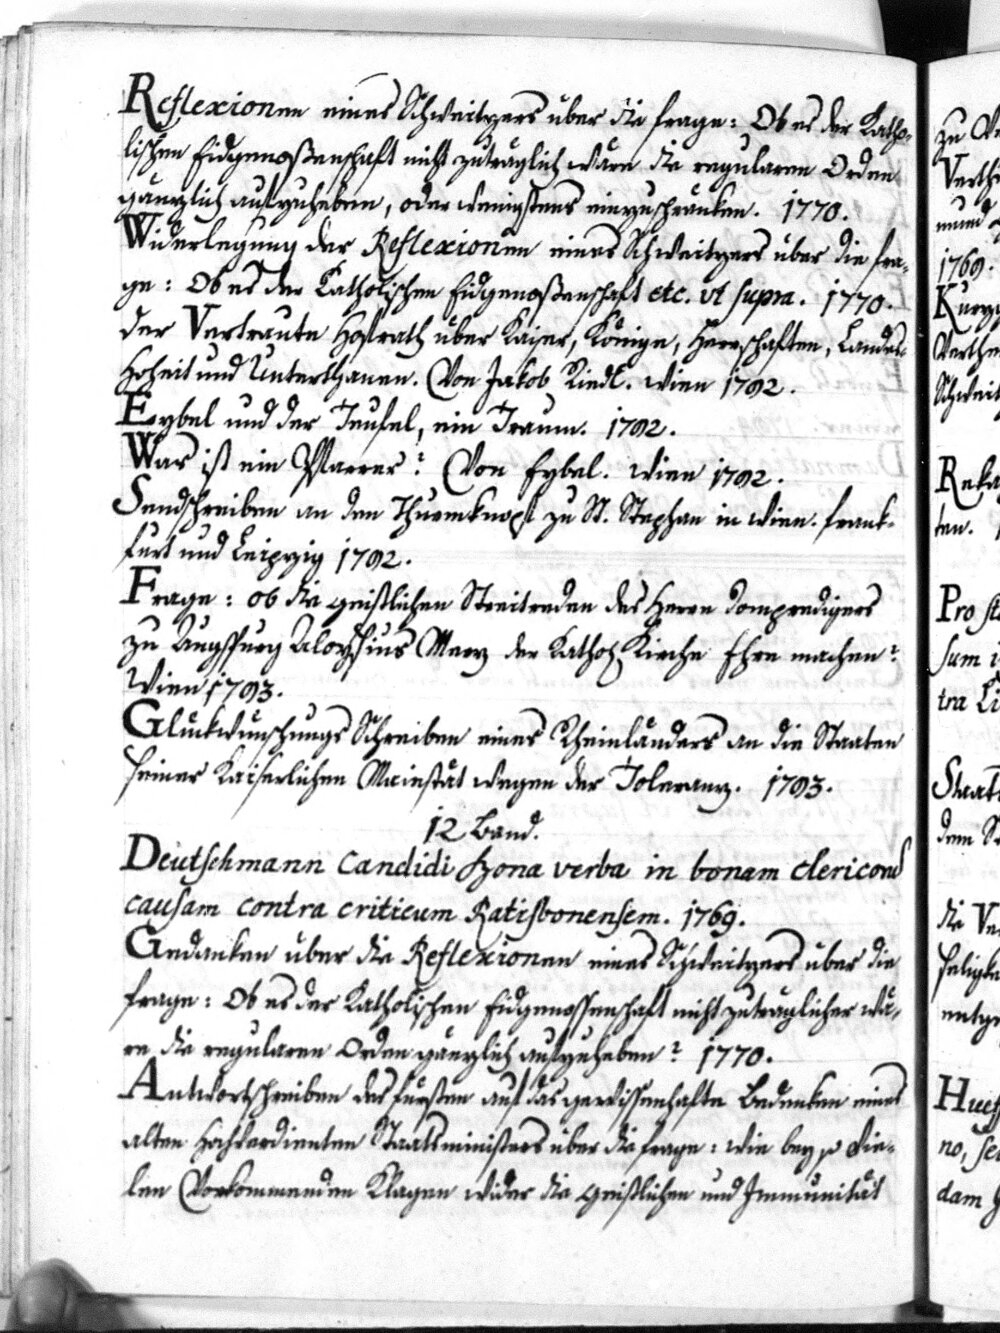 Reflexionen eines Schweitzers über die frage: Ob es der Katho-
lischen Eidgenoßenschaft nicht zuträglich wäre die regularen Orden
gänzlich aufzuheben, oder wenigstens einzuschränken. 1770.
Widerlegung der Reflexionen eines Schweitzers über die fra-
ge: Ob es der Katholischen Eidgenoßenschaft etc. vt supra. 1770.
Der Vertraute Hofrath über Kaiser, Könige, Herrschaften, Landes-
Hoheit und Unterthanen. Von Jakob Riedl. Wien 1792.
Eybel und der Teufel, ein Traum. 1792.
Was ist ein Pfarrer? Von Eybel. Wien 1792.
Sendschreiben an den Thurmknopf zu St. Stephan in Wien. frank-
furt und Leipzig 1792.
Frage: ob die geistlichen Streitreden des Herrn Dompredigers
zu Augspurg Aloysius Merz der Kathol. Kirche Ehre machen?
Wien 1793.
Glückwünschungs Schreiben eines Rheinländers an die Staaten
seiner Kaiserlichen Maiestät wegen der Toleranz. 1793.
12 Band.
Deutschmann Candidi bona verba in bonam clericorum
causam contra criticum Ratisbonensem. 1769.
Gedanken über die Reflexionen eines Schweitzers über die
frage: Ob es der Katholischen Eidgenossenschaft nicht zuträglicher wä-
re die regularen Orden gänzlich aufzuheben? 1770.
Antwortschreiben des fürsten auf das gewissenhafte Bedenken eines
alten hochverdienten Staatsministers über die frage: wie bey so vie-
len Vorkommenden Klagen wider die geistlichen und Immunität
zu
Verth
1769.
Kurz
Verthe
Schweit
ten.
Pro
sum
tra
Staats
dem
die Ve
seligke
no,
dam